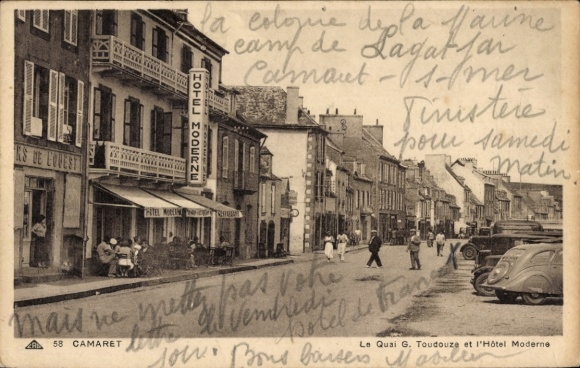 la colonie de la Marine
camp de Lagatjar
Camaret - s - mer
Finistère
pour samedi
Matin
HOTEL MODERNE
RS DE L'OUEST
HOTEL MODERNE
mais ne mettez pas votre
lettre vendredi
hotel de
jour. Bons baisers
58 CAMARET
Le Quai G. Toudouze et l'Hôtel Moderne